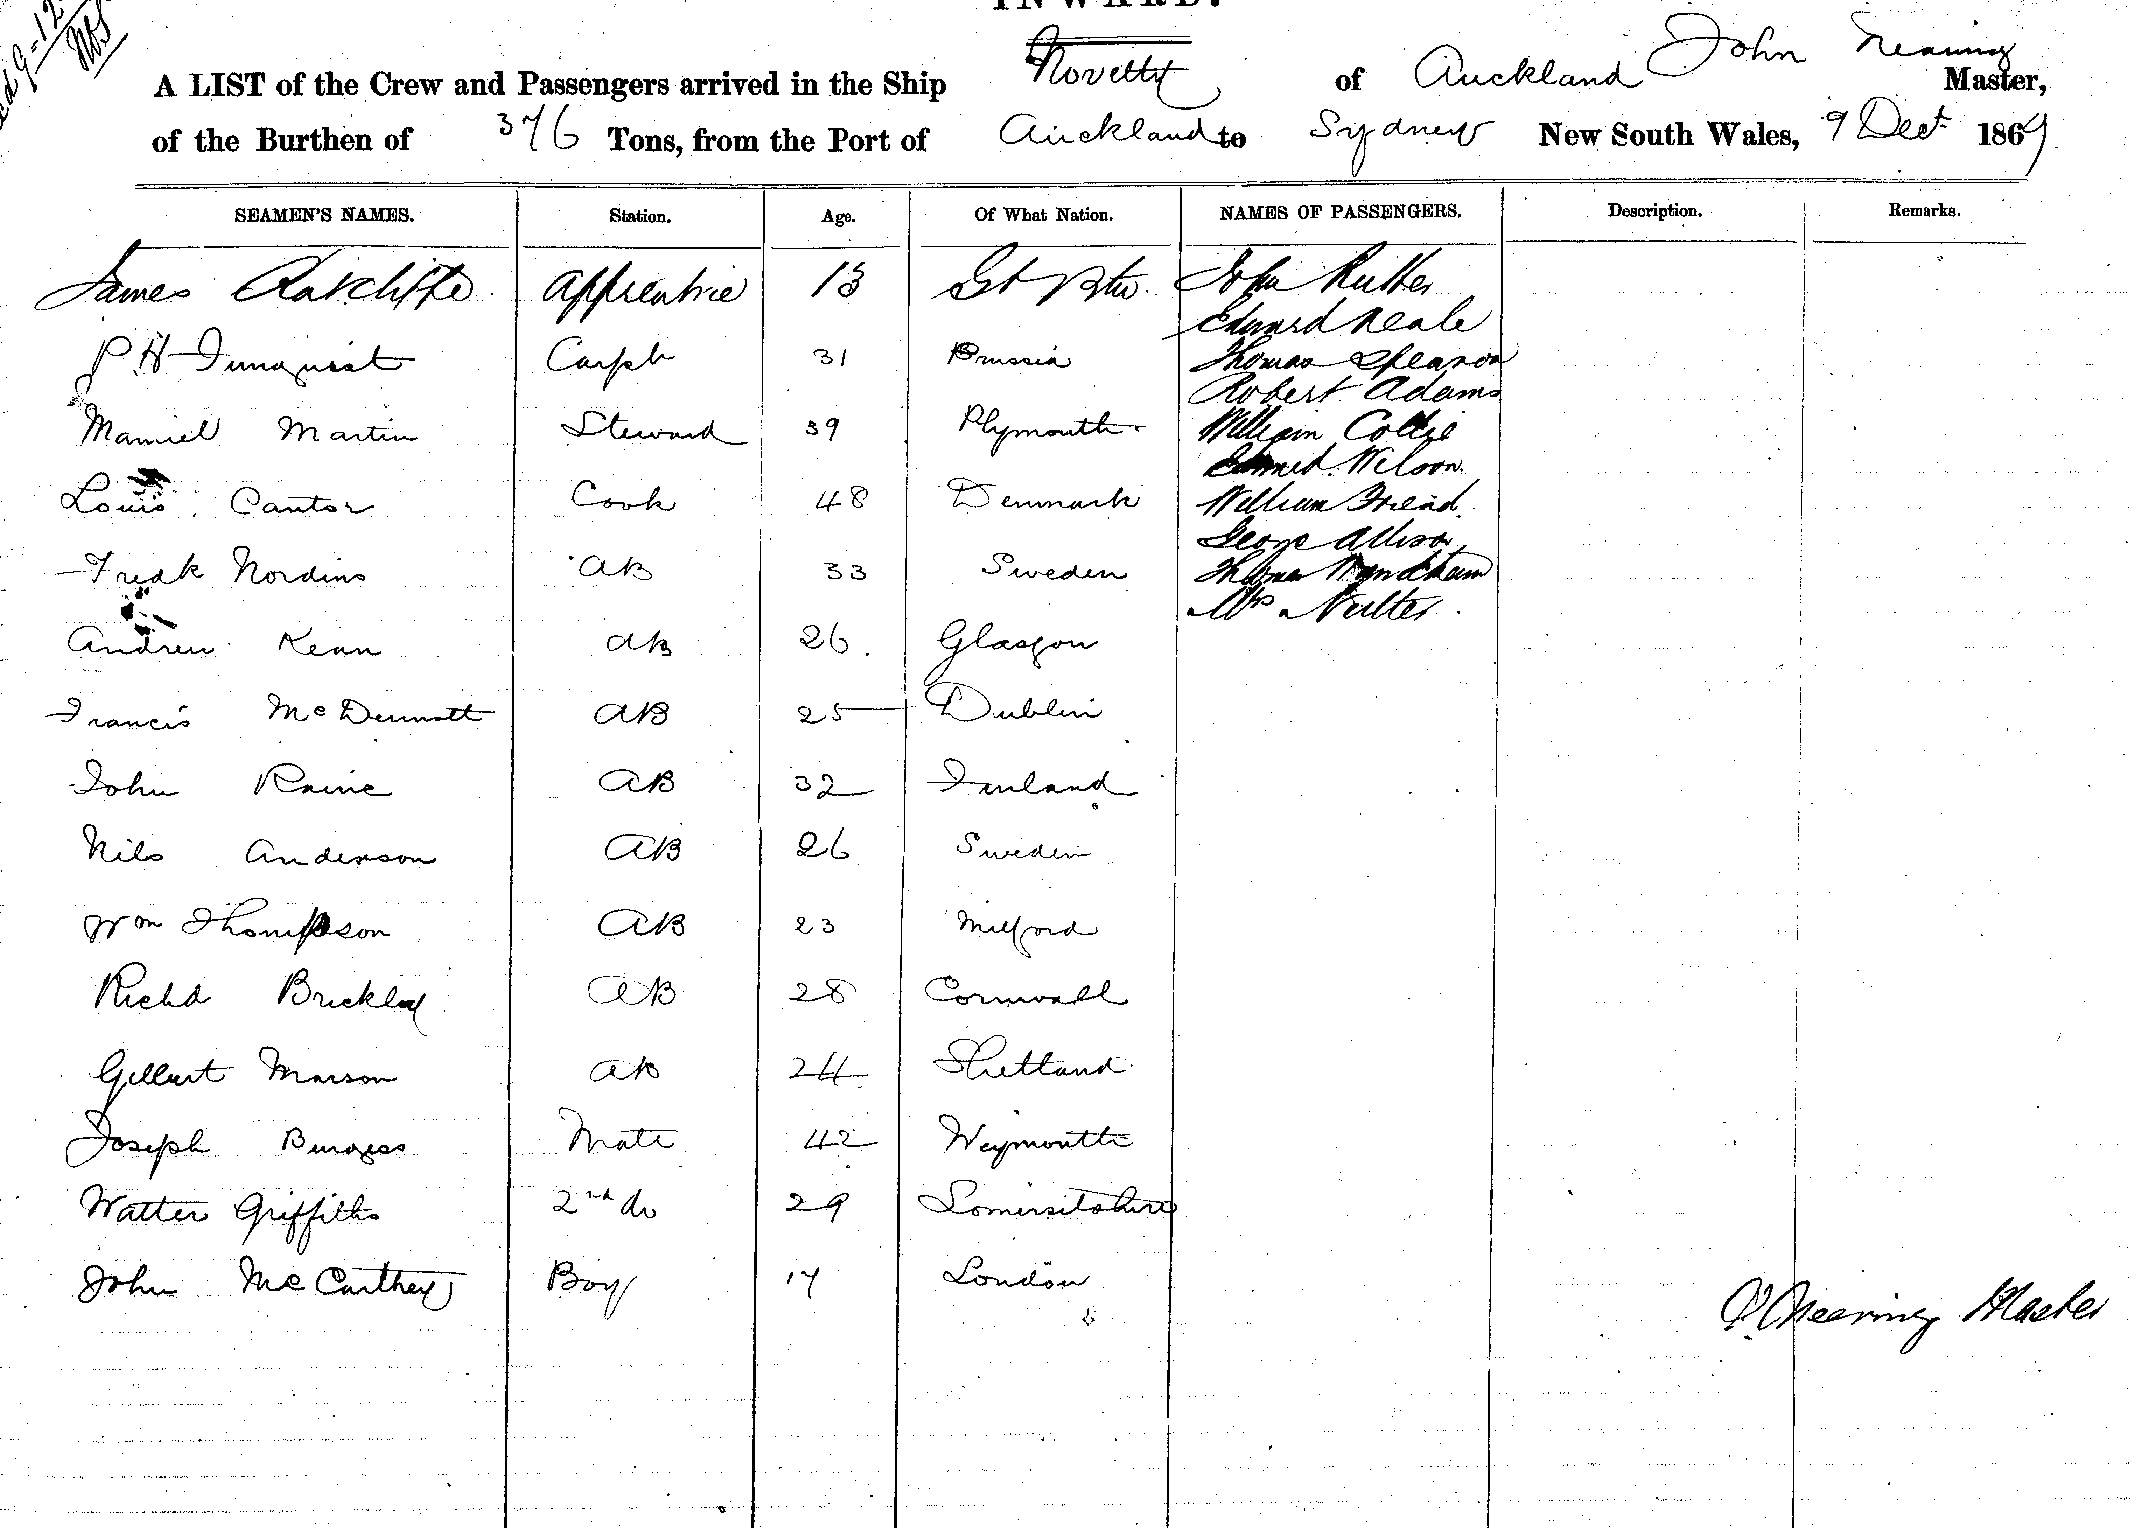 INWARD.
A LIST of the Crew and Passengers arrived in the Ship Novelty of Auckland John Nearing Master,
of the Burthen of 376 Tons, from the Port of Auckland to Sydney New South Wales, 9 Dect 1869
SEAMEN'S NAMES. Station. Age. Of What Nation. NAMES OF PASSENGERS. Description. Remarks.
James Ratcliffe apprentice 13 Gt Btn. John Rutter
Edward Neale
P H Carpt 31 Prussia Thomas Spearon
Robert Adams
Manuel Martin Steward 39 Plymouth William
Wilson
Louis Cantor Cook 48 Denmark William Friend
George Allison
Fredk Nordins AB 33 Sweden Thomas Wyndham
Mrs
Andrew Kean AB 26 Glasgow
Francis McDermott AB 25 Dublin
John Raine AB 32 Finland
Nils Anderson AB 26 Sweden
Wm Thompson AB 23 Milford
Richd Brickley AB 28 Cornwall
Gilbert Manson AB 24 Shetland
Joseph Burgess Mate 42 Weymouth
Walter Griffiths 2nd do 29 Somersetshire
John McCarthey Boy 17 London
Nearing Master